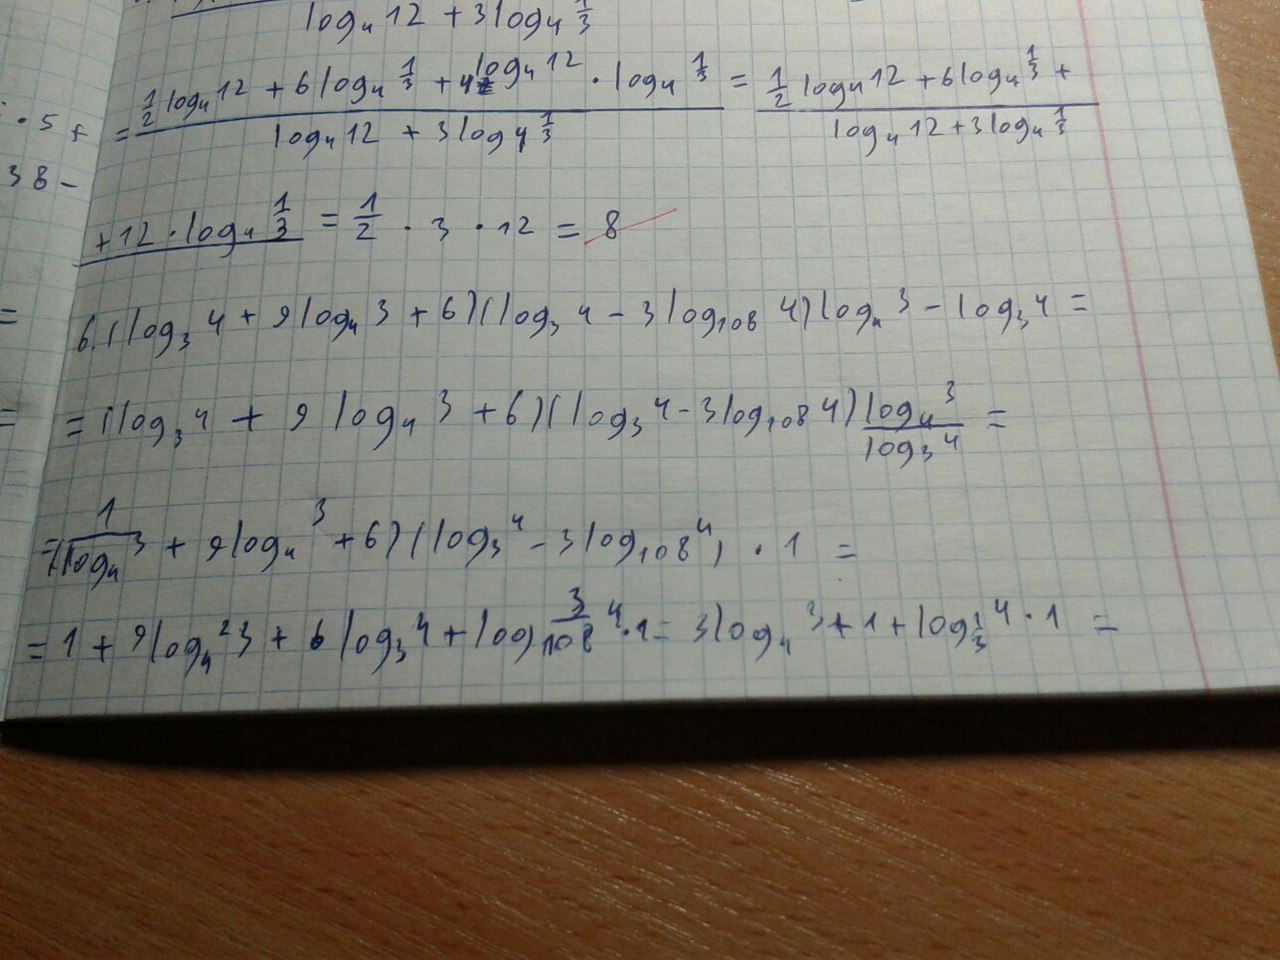 log₄ 12 + 3 log₄ 1/3
= (1/2 log₄ 12 + 6 log₄ 1/3 + 4 log₄ 12 · log₄ 1/3) / (log₄ 12 + 3 log₄ 1/3) = (1/2 log₄ 12 + 6 log₄ 1/3 +) / (log₄ 12 + 3 log₄ 1/3)
· 5 +
38 -
+ 12 · log₄ 1/3 = 1/2 · 3 · 12 = 8
=
6. (log₃ 4 + 9 log₄ 3 + 6)(log₃ 4 - 3 log₁₀₈ 4) log₄ 3 - log₃ 4 =
=
= (log₃ 4 + 9 log₄ 3 + 6)(log₃ 4 - 3 log₁₀₈ 4) log₄ 3 / log₃ 4 =
= (1 / log₄ 3 + 9 log₄ 3 + 6)(log₃ 4 - 3 log₁₀₈ 4) · 1 =
= 1 + 9 log₄² 3 + 6 log₃ 4 + log 3/108 4 · 1 = 3 log₄ 3 + 1 + log 1/3 4 · 1 =